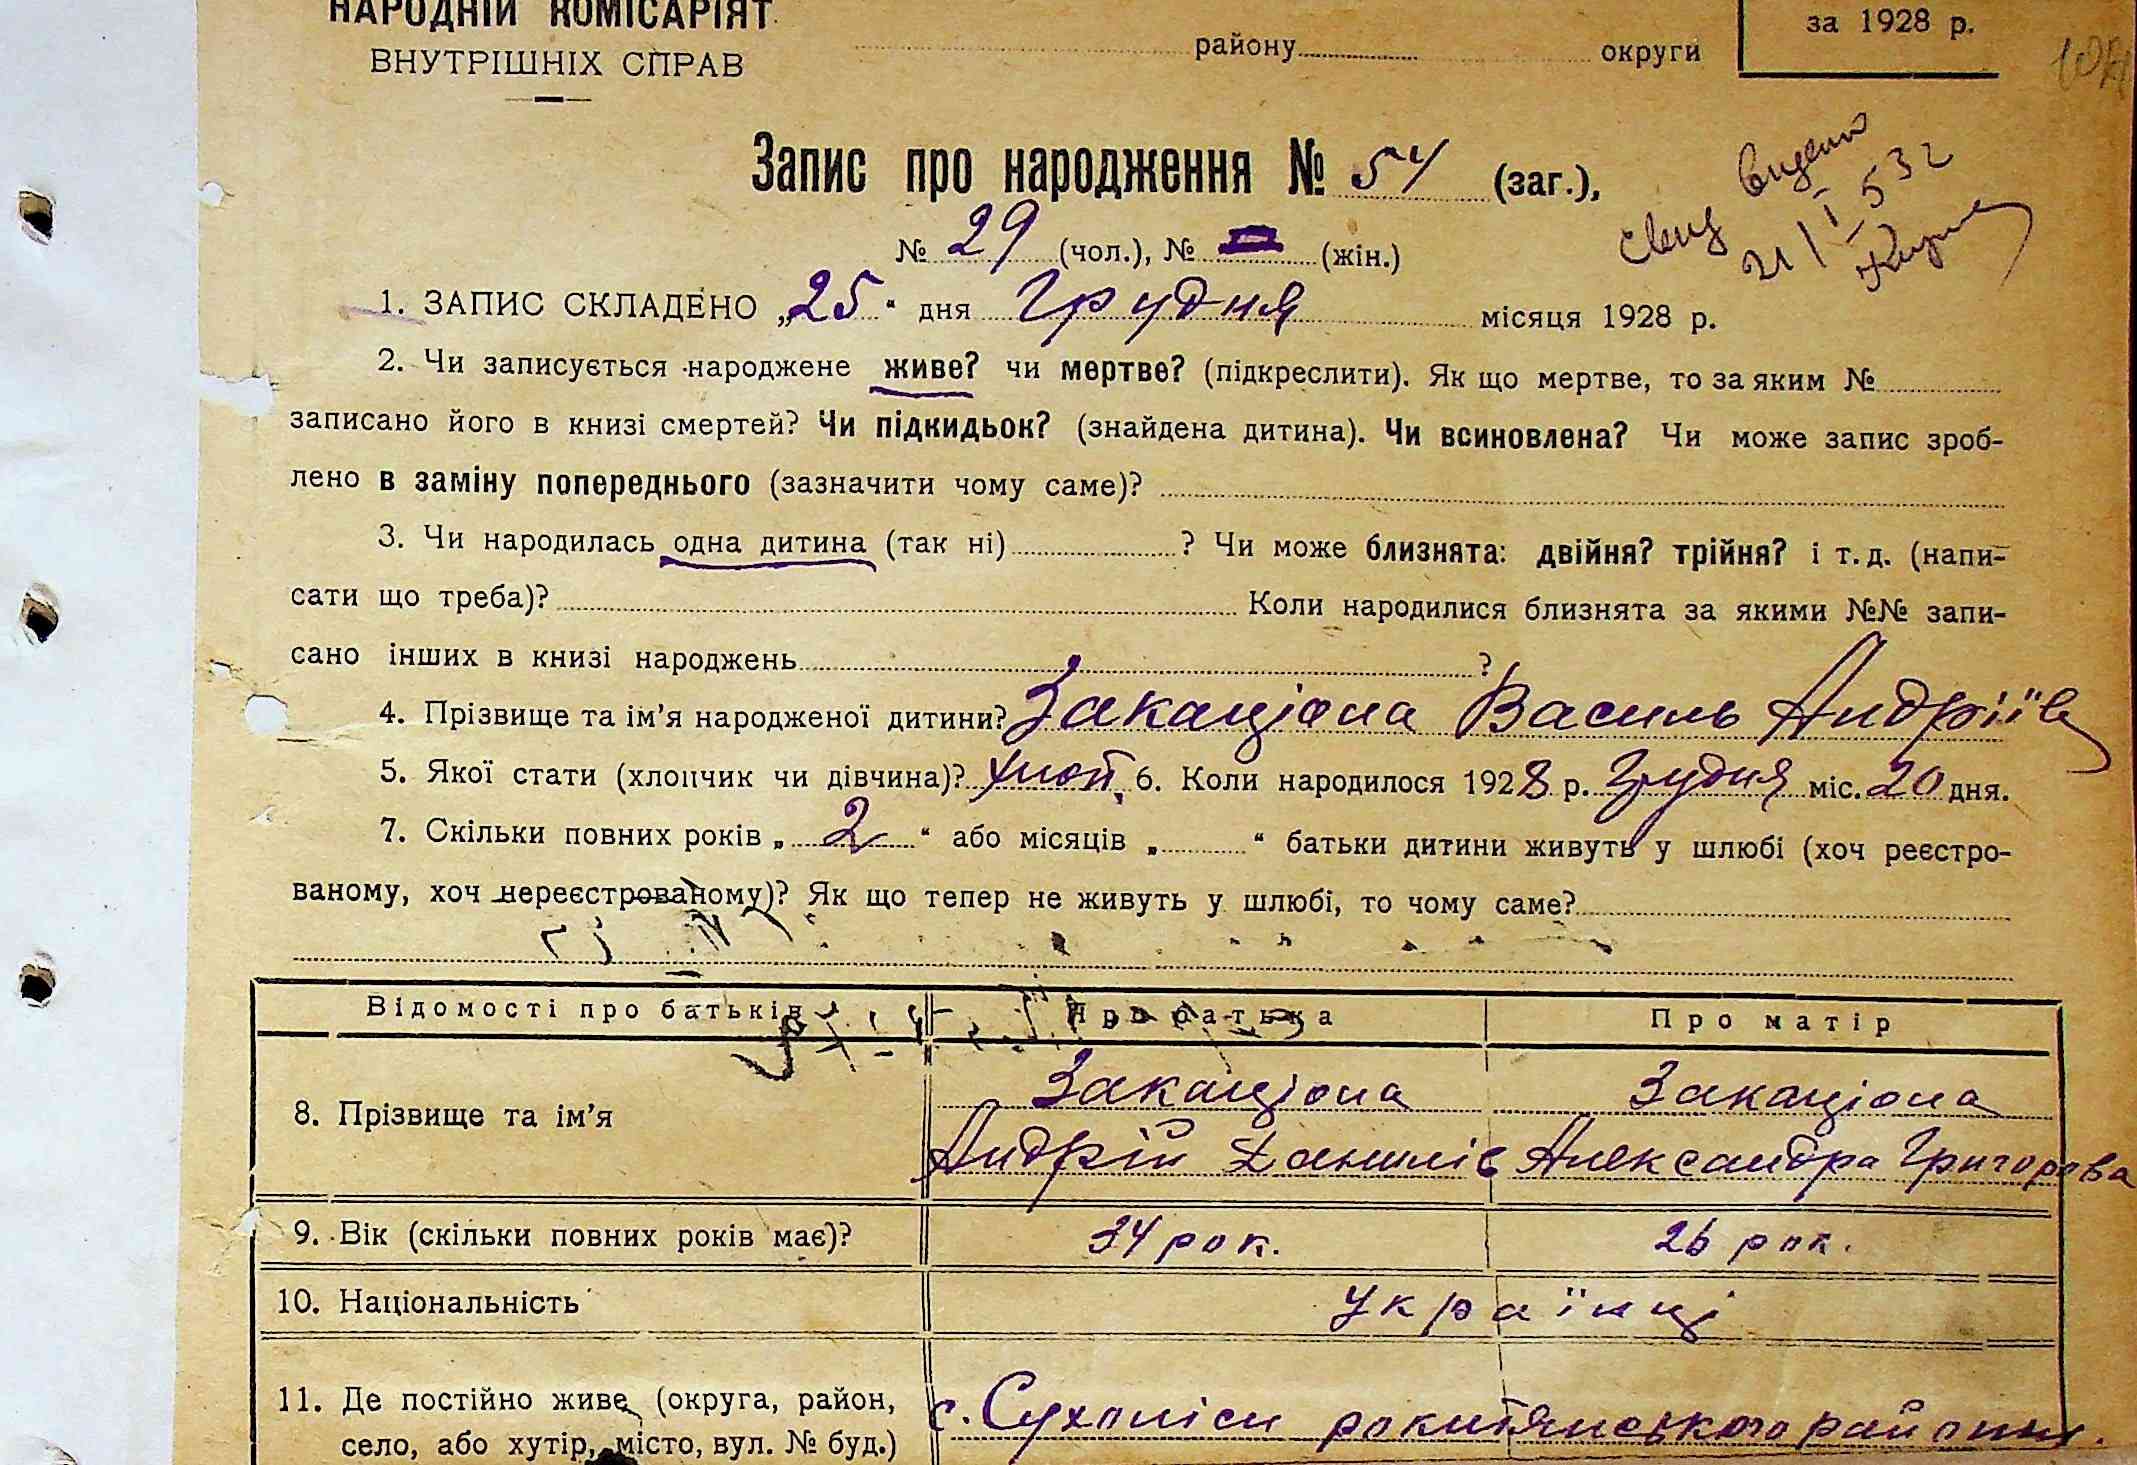 НАРОДНІЙ КОМІСАРІЯТ
ВНУТРІШНІХ СПРАВ
району округи
за 1928 р.
Запис про народження № 54 (заг.),
№ 29 (чол.), № (жін.)
видано
21/I 532
1. ЗАПИС СКЛАДЕНО „25“ дня Грудня місяця 1928 р.
2. Чи записується народжене живе? чи мертве? (підкреслити). Як що мертве, то за яким №
записано його в книзі смертей? Чи підкидьок? (знайдена дитина). Чи всиновлена? Чи може запис зроб-
лено в заміну попереднього (зазначити чому саме)?
3. Чи народилась одна дитина (так ні) ? Чи може близнята: двійня? трійня? і т. д. (напи-
сати що треба)? Коли народилися близнята за якими №№ запи-
сано інших в книзі народжень ?
4. Прізвище та ім’я народженої дитини? Закаціона Василь Андріїв
5. Якої стати (хлопчик чи дівчина)? хлоп, 6. Коли народилося 1928 р. Грудня міс. 20 дня.
7. Скільки повних років „ 2 “ або місяців „ “ батьки дитини живуть у шлюбі (хоч реєстро-
ваному, хоч нереєстрованому)? Як що тепер не живуть у шлюбі, то чому саме?
Відомості про батьків Про батька Про матір
8. Прізвище та ім’я Закаціона Закаціона
Андрій Данилів Александра Григорова
9. Вік (скільки повних років має)? 34 рок. 26 рок.
10. Національність Українці
11. Де постійно живе (округа, район, с. Сухоліси рокитянського району.
село, або хутір, місто, вул. № буд.)